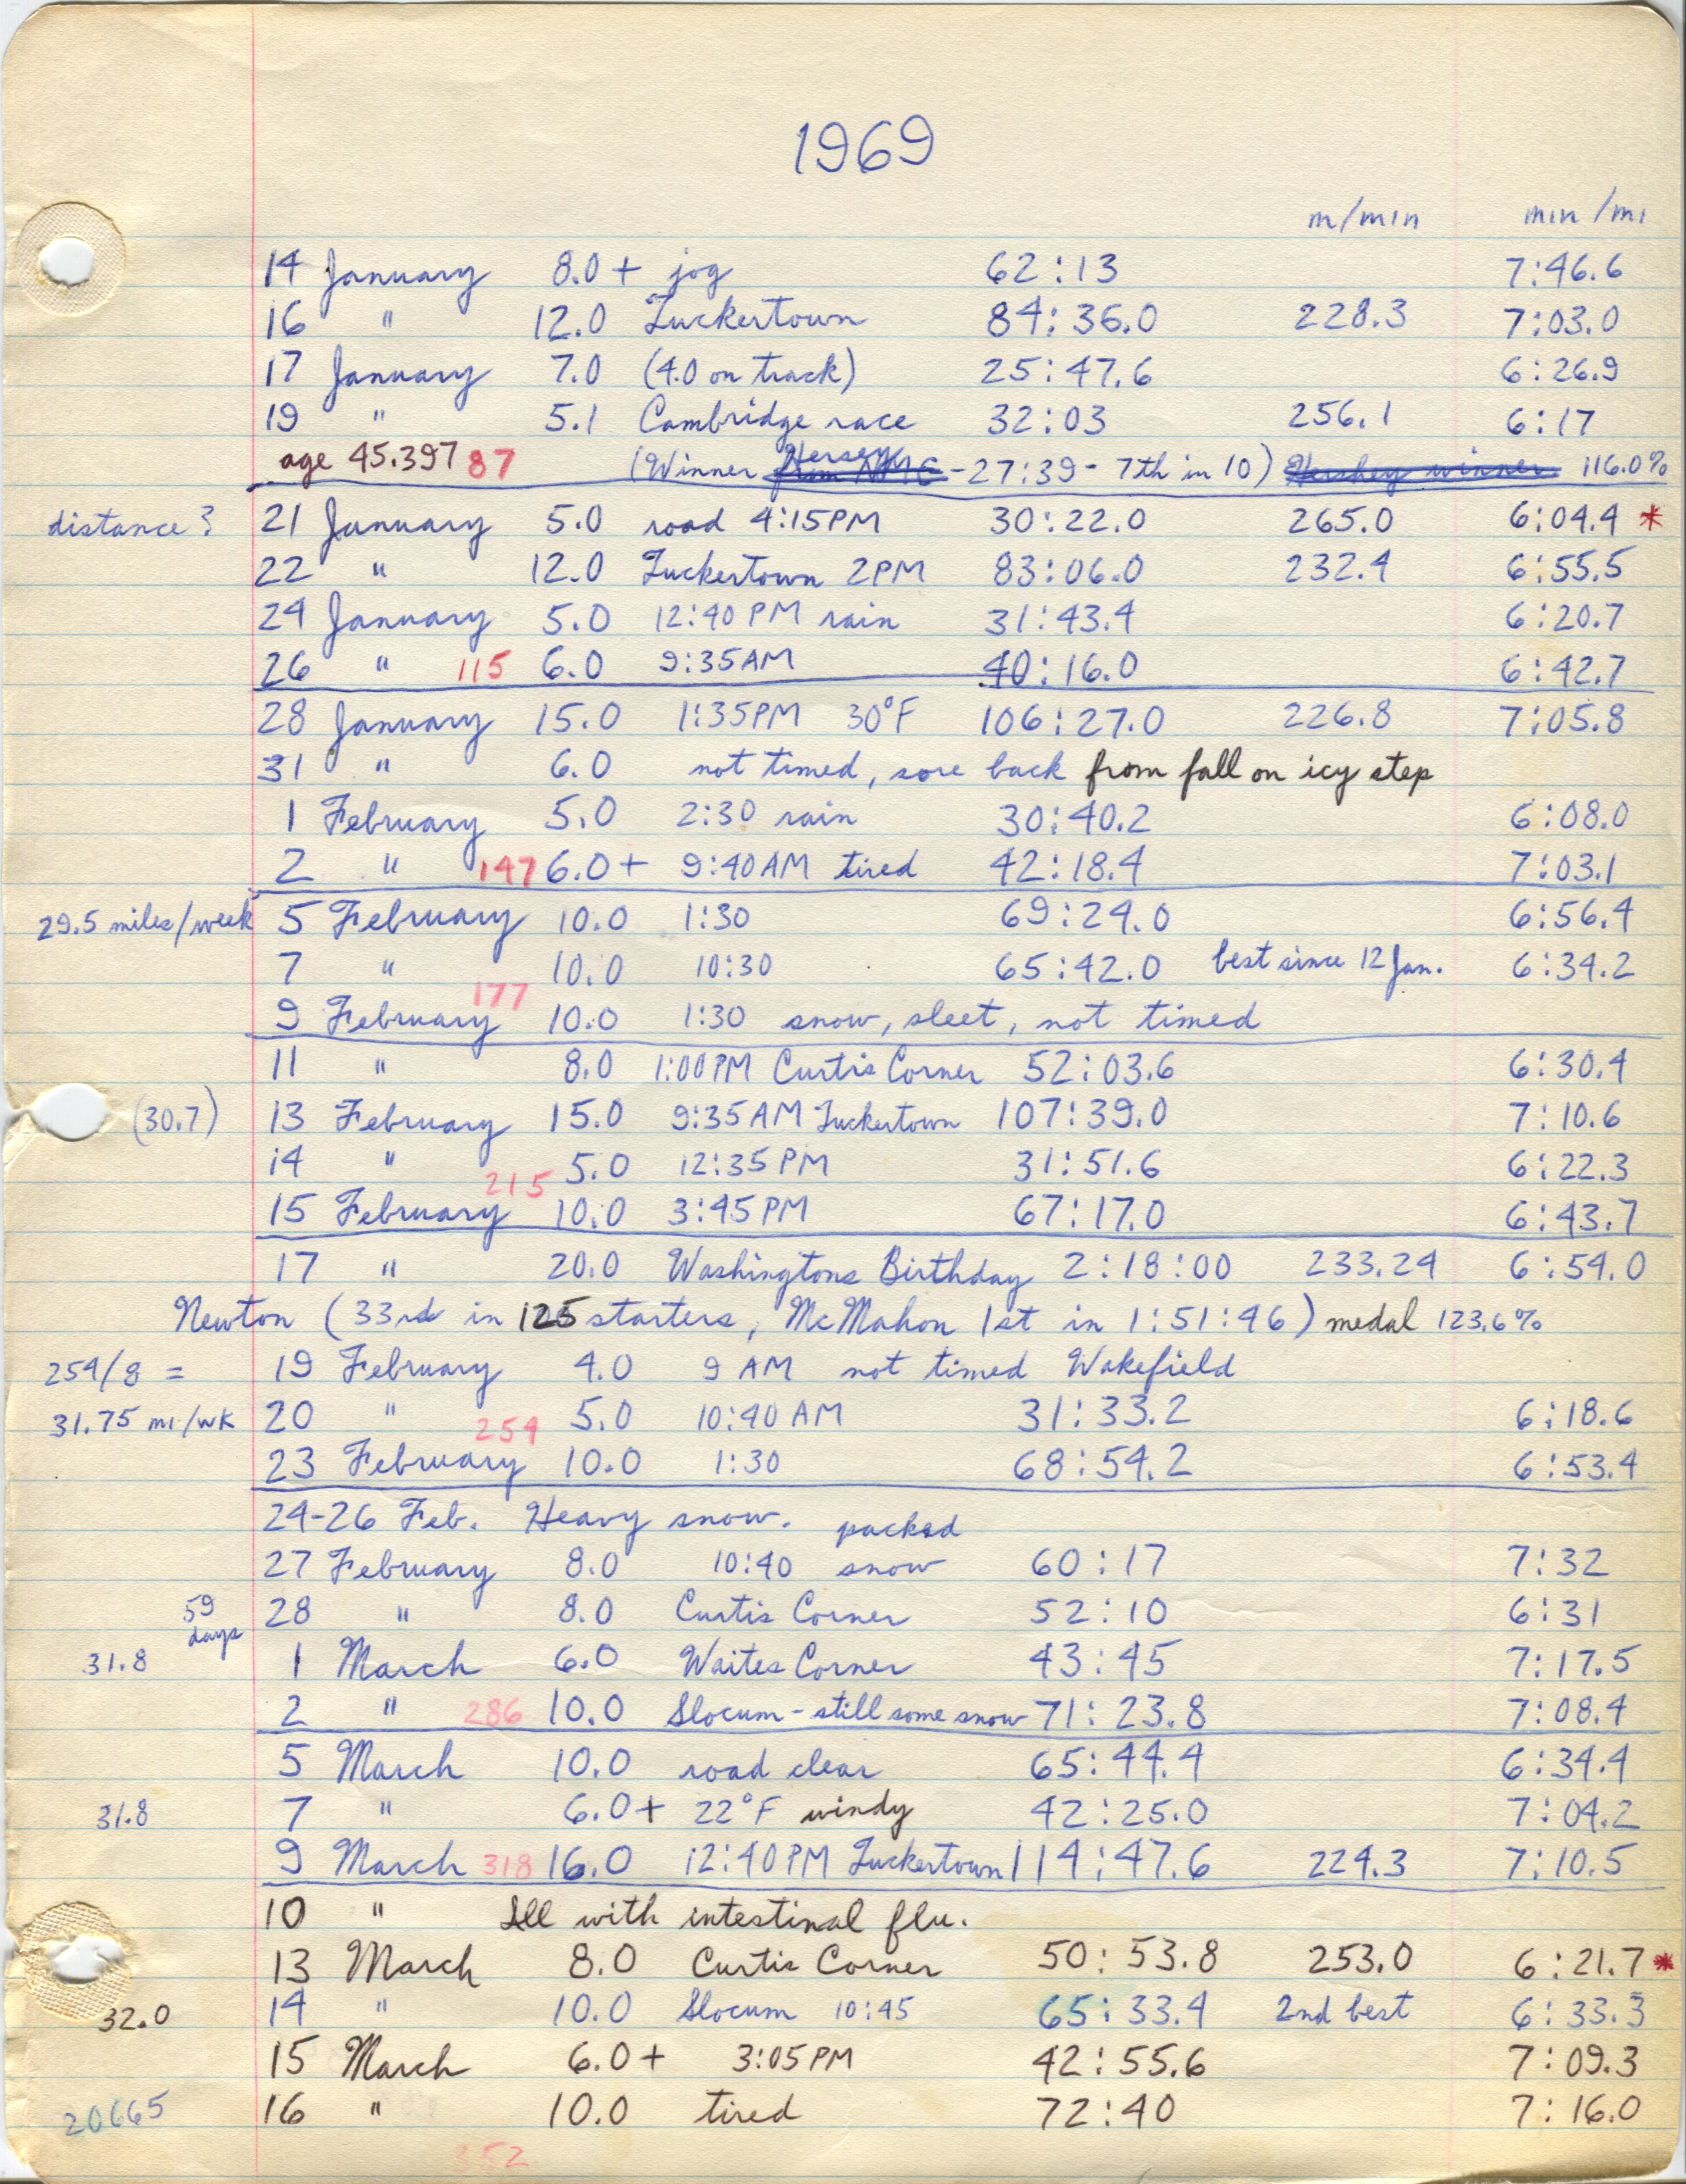 1969
m/min min/mi
14 January 8.0+ jog 62:13 7:46.6
16 " 12.0 Tuckertown 84:36.0 228.3 7:03.0
17 January 7.0 (4.0 on track) 25:47.6 6:26.9
19 " 5.1 Cambridge race 32:03 256.1 6:17
age 45.397 87 (Winner Hersey - 27:39 - 7th in 10) Hershey winner 116.0%
distance? 21 January 5.0 road 4:15PM 30:22.0 265.0 6:04.4 *
22 " 12.0 Tuckertown 2PM 83:06.0 232.4 6:55.5
24 January 5.0 12:40 PM rain 31:43.4 6:20.7
26 " 115 6.0 9:35AM 40:16.0 6:42.7
28 January 15.0 1:35PM 30°F 106:27.0 226.8 7:05.8
31 " 6.0 not timed, sore back from fall on icy step
1 February 5.0 2:30 rain 30:40.2 6:08.0
2 " 147 6.0+ 9:40AM tired 42:18.4 7:03.1
29.5 miles/week 5 February 10.0 1:30 69:24.0 6:56.4
7 " 10.0 10:30 65:42.0 best since 12 Jan. 6:34.2
177
9 February 10.0 1:30 snow, sleet, not timed
11 " 8.0 1:00PM Curtis Corner 52:03.6 6:30.4
(30.7) 13 February 15.0 9:35AM Tuckertown 107:39.0 7:10.6
14 " 5.0 12:35 PM 31:51.6 6:22.3
215
15 February 10.0 3:45PM 67:17.0 6:43.7
17 " 20.0 Washingtons Birthday 2:18:00 233.24 6:54.0
Newton (33rd in 125 starters, McMahon 1st in 1:51:46) medal 123.6%
254/8 = 19 February 4.0 9 AM not timed Wakefield
31.75 mi/wk 20 " 5.0 10:40 AM 31:33.2 6:18.6
254
23 February 10.0 1:30 68:54.2 6:53.4
24-26 Feb. Heavy snow. packed
27 February 8.0 10:40 snow 60:17 7:32
59 days 28 " 8.0 Curtis Corner 52:10 6:31
31.8 1 March 6.0 Waites Corner 43:45 7:17.5
2 " 286 10.0 Slocum - still some snow 71:23.8 7:08.4
5 March 10.0 road clear 65:44.4 6:34.4
31.8 7 " 6.0+ 22°F windy 42:25.0 7:04.2
9 March 318 16.0 12:40PM Tuckertown 114:47.6 224.3 7:10.5
10 " Ill with intestinal flu.
13 March 8.0 Curtis Corner 50:53.8 253.0 6:21.7 *
32.0 14 " 10.0 Slocum 10:45 65:33.4 2nd best 6:33.3
15 March 6.0+ 3:05PM 42:55.6 7:09.3
20665 16 " 10.0 tired 72:40 7:16.0
352